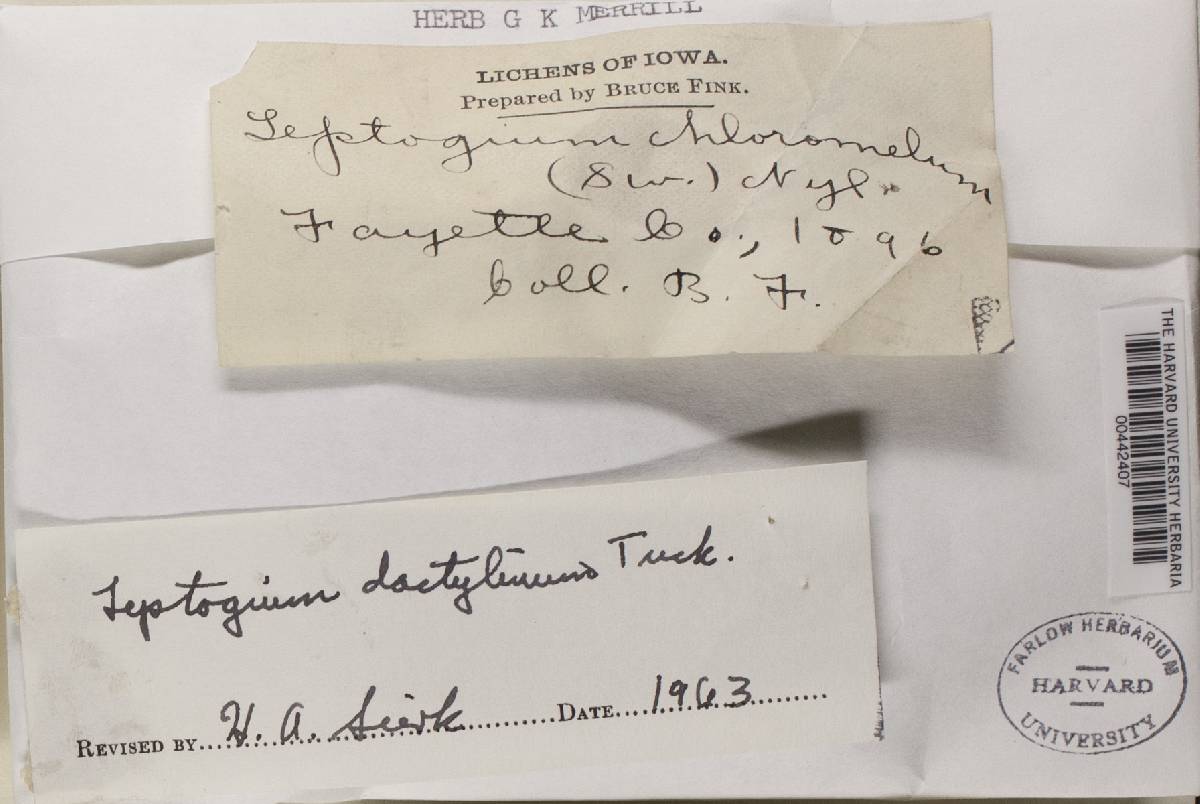 HERB G K MERRILL
LICHENS OF IOWA.
Prepared by BRUCE FINK.
Leptogium chloromelum
(Sw.) Nyl.
Fayette Co., 1896
Coll. B. F.
THE HARVARD UNIVERSITY HERBARIA
00442407
Leptogium dactylinum Tuck.
REVISED BY....H. A. Sierk..........DATE....1963.........
FARLOW HERBARIUM
HARVARD
UNIVERSITY